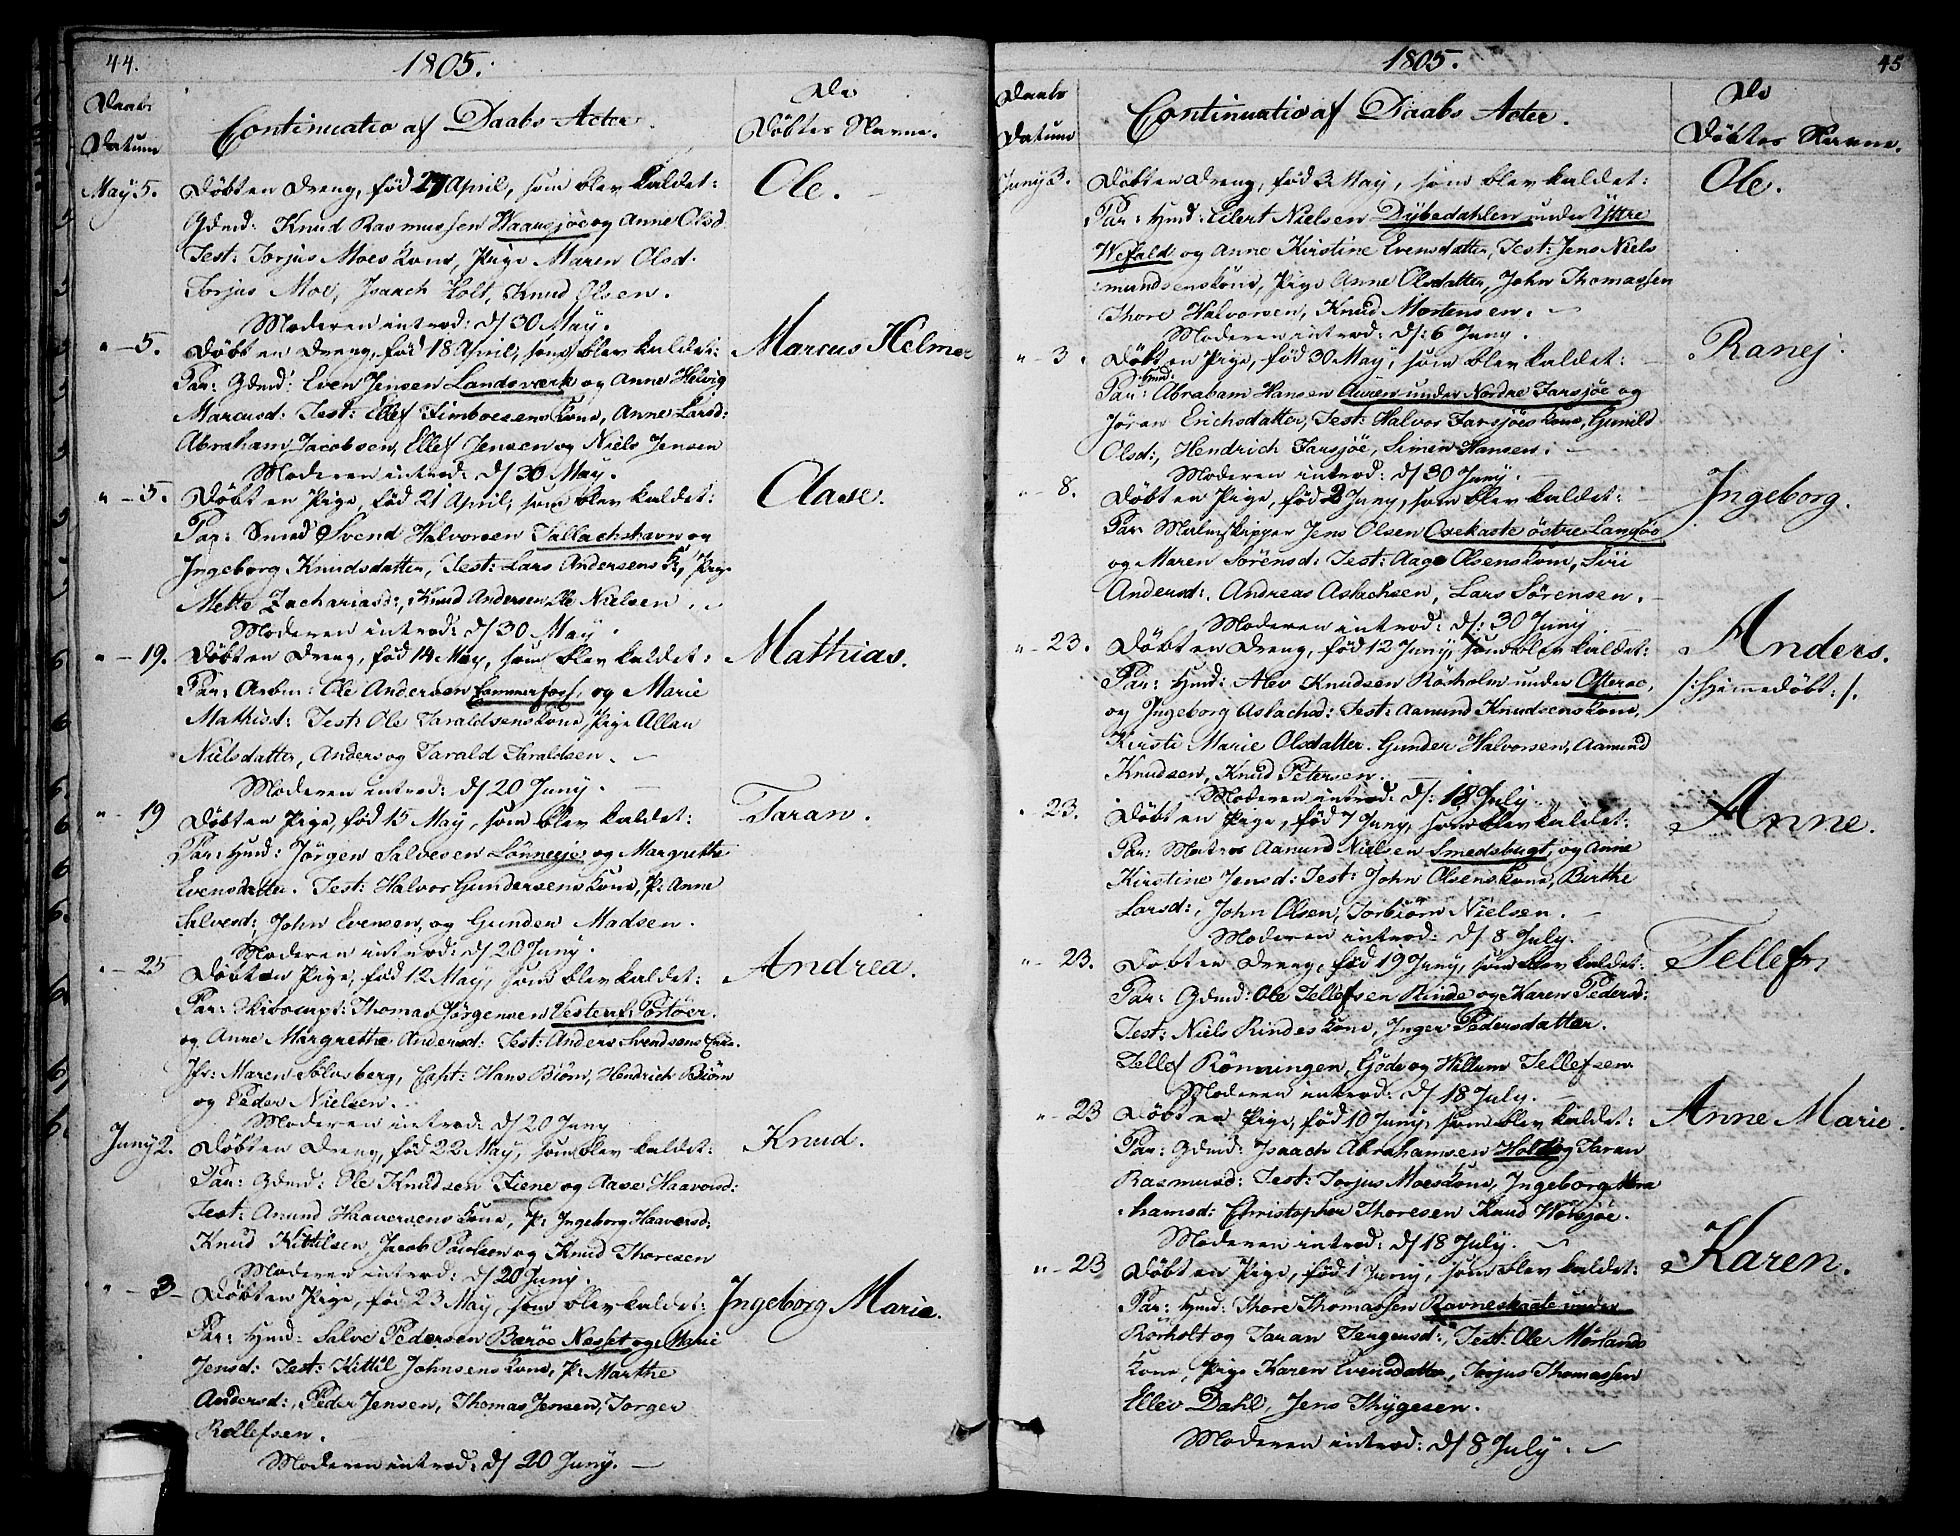 44.
1805.
Daabs
Datum
Continuatio af Daabs Acter.
De
Döbtes Navne.
May 5.
Döbt en Dreng, föd 27 April, som blev kaldet:
Ole.
Gdmd: Knud Rasmussen Waarsjöe og Anne Olsd.
Test: Torjus Moes Kone, Pige Maren Olsd.
Torjus Moe, Isaach Holt, Knud Olsen.
Moderen introd: d/ 30 May.
" - 5.
Döbt en Dreng, föd 18 April, som blev kaldet:
Marcus Helmer
Par: Gdmd: Even Jensen Landsværk og Anne Helvig
Marcusd: Test: Ellef Timboesens Kone, Anne Larsd:
Abraham Jacobsen, Ellef Jensen og Niels Jensen
Moderen introd: d/ 30 May.
" - 5.
Döbt en Pige, föd 21 April, som blev kaldet:
Olase.
Par: Smed Svend Halvorsen Tallachshavn og
Ingeborg Knudsdatter, Test: Lars Andersens K, Pige
Mette Zachariasd:, Knud Andersen, Ole Nielsen.
Moderen introd: d/ 30 May.
" - 19.
Döbt en Dreng, föd 14 May, som blev kaldet:
Mathias.
Par: Arbm: Ole Andersen Cammerfoss, og Marie
Mathisd: Test: Ole Taraldsens Kone, Pige Allan
Nielsdatter, Anders og Tarald Taraldsen.
Moderen introd: d/ 20 Juny.
" - 19
Döbt en Pige, föd 15 May, som blev kaldet:
Taran.
Par: Hmd: Jörgen Salvesen Lönneeje og Margrethe
Evensdatter. Test: Halvor Gundersens Kone, P: Anne
Salvesd:, John Evensen, og Gunder Madsen.
Moderen introd: d/ 20 Juny.
" - 25
Döbt en Pige, föd 12 May, som blev kaldet:
Andrea.
Par: Skibscapt: Thomas Jörgensen Vesteref: Portöer.
og Anne Margrethe Andersd: Test: Anders Svendsens Enke.
Jfr: Maren Sölvsberg, Capt: Hans Biörn, Hendrich Biörn
og Peder Nielsen.
Moderen introd: d/ 20 Juny
Juny 2.
Döbt en Dreng, föd 22 May, som blev kaldet:
Knud.
Par: Gdmd: Ole Knudsen Fiene og Aase Haavorsd:
Test: Anund Haaversens Kone, P: Ingeborg Haaversd:
Knud Kittilsen, Jacob Poulsen og Knud Thoresen
Moderen introd: d/ 20 Juny.
" - 3 -
Döbt en Pige, föd 23 May, som blev kaldet:
Ingeborg Marie.
Par: Hmd: Salve Pedersen Baröe Nesset og Marie
Jensd: Test: Kittil Johnsens Kone, P: Marthe
Andersd:, Peder Jensen, Thomas Jensen, Torger
Rollefsen.
Moderen introd: d/ 20 Juny.
1805.
45
Daabs
Datum
Continuatio af Daabs Acter.
De
Döbtes Navne.
Juny 3.
Döbt en Dreng, föd 3 May, som blev kaldet:
Ole.
Par: Hmd: Eilert Nielsen Dybedahlen under Yttre
Wefald og Anne Kirstine Evensdatter, Test: Jens Niels
mundsens Kone, Pige Anne Olsdatter, John Thomassen
Thore Halvorsen, Knud Mortensen.
Moderen introd: d/: 6 Juny.
" - 3.
Döbt en Pige, föd 30 May, som blev kaldet:
Ranej.
Par: Hmd: Abraham Hansen Auren under Nordre Farsjöe og
Jöran Erichsdatter, Test: Halvor Farsjöes Kone, Gunild
Olsd:, Hendrich Farsjöe, Simen Hansen.
Moderen introd: d/ 30 Juny.
" - 8.
Döbt en Pige, föd 2 Juny, som blev kaldet:
Ingeborg.
Par Malmskipper Jens Olsen Osekaste östre Langöe
og Maren Sörensd: Test: Aage Olsens Kone, Siri
Andersd:, Andreas Aslachsen, Lars Sörensen.
Moderen introd: d/: 30 Juny
" - 23.
Döbt en Dreng, föd 12 Juny som blev kaldet:
Anders.
Par: Hmd: Alev Knudsen Rörholm under Afteröe,
/: hjemedöbt: /.
og Ingeborg Aslachsd: Test: Aamund Knudsens Kone,
Kirsti Marie Olsdatter. Gunder Halvorsen, Aamund
Knudsen, Knud Petersen.
Moderen introd: d/: 18 July
" 23.
Döbt en Pige, föd 7 Juny, som blev kaldet:
Anne.
Par: Matros Aanund Nielsen Smedsbugt, og Anne
Kirstine Jensd: Test: John Olsens Kone, Birthe
Larsd:, John Olsen, Torbiörn Nielsen.
Moderen introd: d/ 8 July.
" - 23.
Döbt en Dreng, föd 19 Juny, som blev kaldet:
Tellef.
Par: Gdmd: Ole Tellefsen Rinde og Karen Pedersd:
Test: Niels Rindes Kone, Inger Pedersdatter.
Tellef Rönningen, Gjöde og Killum Tellefsen
Moderen introd: d/ 18 July.
" - 23
Döbt en Pige, föd 10 Juny, som blev kaldet:
Anne Marie.
Par: Gdmd: Isaach Abrahamsen Holt og Taran
Rasmusd: Test: Torjus Moes Kone, Ingeborg Abra
hamsd: Christopher Thoresen Knud Worsjöe.
Moderen introd: d/ 18 July.
" - 23
Döbt en Pige, föd 1 Juny, som blev kaldet:
Karen.
Par: Hmd: Thore Thomassen Ravneskaate under
Rörholt og Taran Tergersd:, Test: Ole Mörlands
Kone, Pige Karen Evensdatter, Torjus Thomassen
Ellev Dahl, Jens Thygesen.
Moderen introd: d/ 8 July.